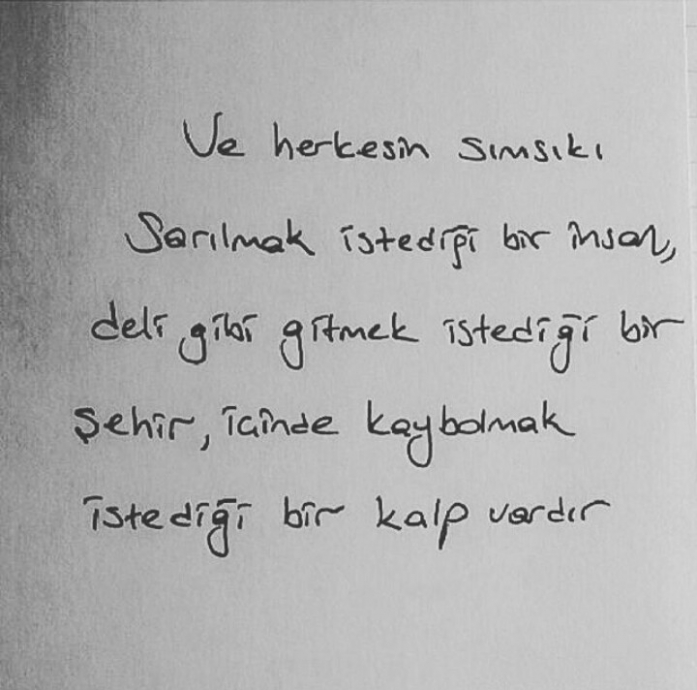 Ve herkesin sımsıkı
Sarılmak istediği bir insan,
deli gibi gitmek istediği bir
şehir, içinde kaybolmak
istediği bir kalp vardır